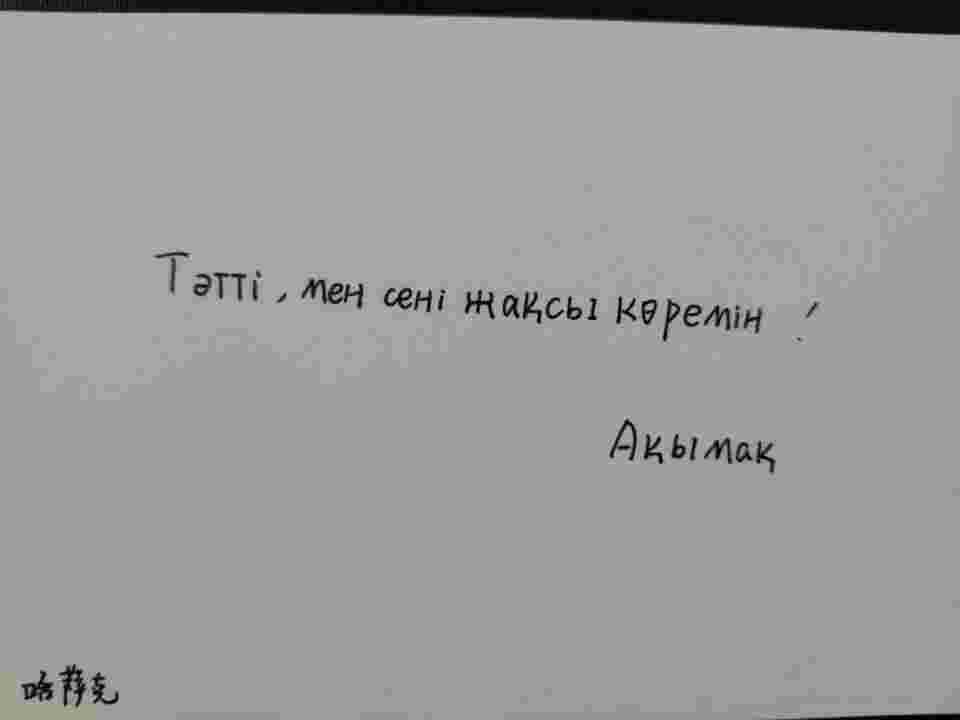 Тәтті, мен сені жақсы көремін!
Ақымақ
哈萨克